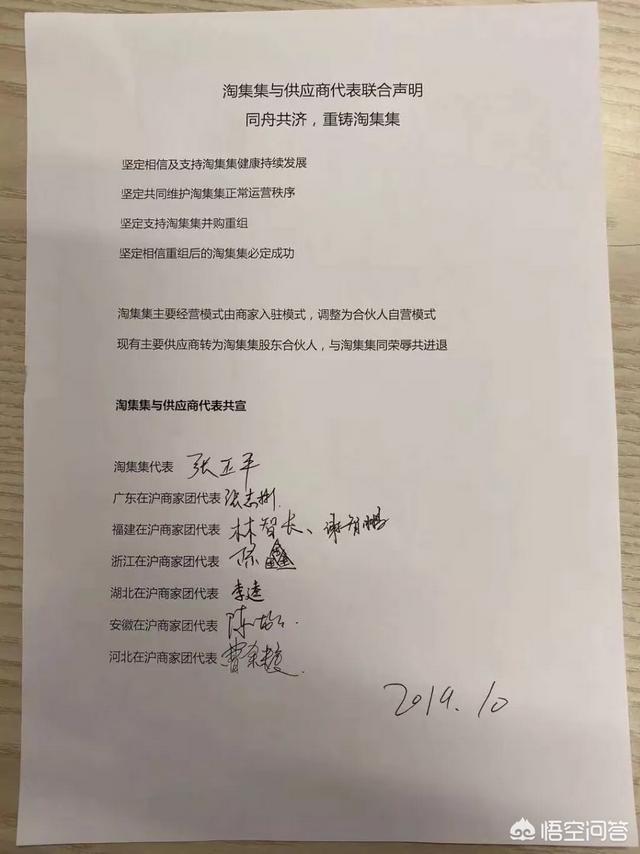 淘集集与供应商代表联合声明
同舟共济，重铸淘集集
坚定相信及支持淘集集健康持续发展
坚定共同维护淘集集正常运营秩序
坚定支持淘集集并购重组
坚定相信重组后的淘集集必定成功
淘集集主要经营模式由商家入驻模式，调整为合伙人自营模式
现有主要供应商转为淘集集股东合伙人，与淘集集同荣辱共进退
淘集集与供应商代表共宣
淘集集代表 张正平
广东在沪商家团代表 张志
福建在沪商家团代表 林智长、谢
浙江在沪商家团代表 陈鑫
湖北在沪商家团代表 李逵
安徽在沪商家团代表 陈
河北在沪商家团代表 曹
2019.10
悟空问答